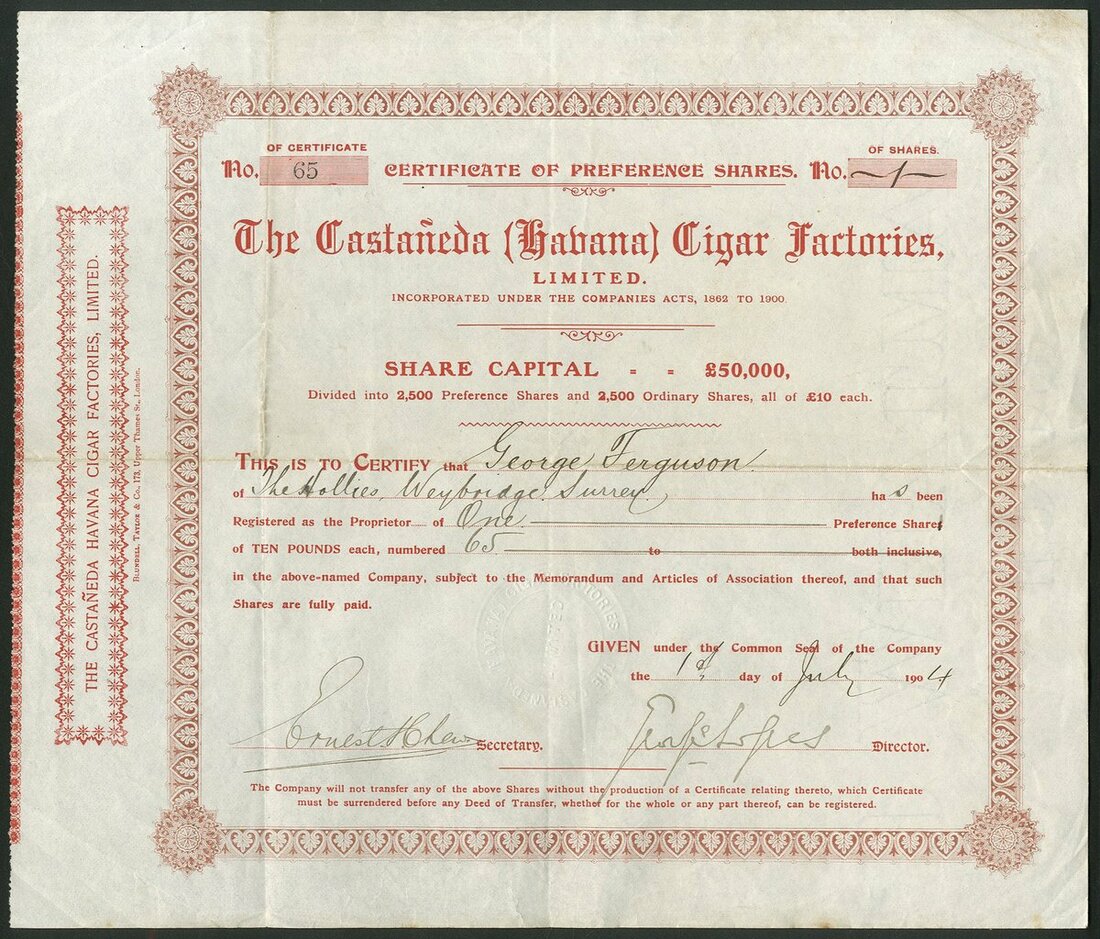 OF CERTIFICATE
No. 65
CERTIFICATE OF PREFERENCE SHARES.
OF SHARES.
No. 1
The Castañeda (Havana) Cigar Factories,
LIMITED.
INCORPORATED UNDER THE COMPANIES ACTS, 1862 TO 1900.
SHARE CAPITAL = = £50,000,
Divided into 2,500 Preference Shares and 2,500 Ordinary Shares, all of £10 each.
THIS IS TO CERTIFY that George Ferguson
of The Hollies, Weybridge, Surrey has been
Registered as the Proprietor of One Preference Share
of TEN POUNDS each, numbered 65 to both inclusive,
in the above-named Company, subject to the Memorandum and Articles of Association thereof, and that such
Shares are fully paid.
GIVEN under the Common Seal of the Company
the 1st day of July 1904
Ernest H Secretary.
Director.
The Company will not transfer any of the above Shares without the production of a Certificate relating thereto, which Certificate
must be surrendered before any Deed of Transfer, whether for the whole or any part thereof, can be registered.
THE CASTAÑEDA HAVANA CIGAR FACTORIES, LIMITED.
BLUNDELL, TAYLOR & CO., 173, Upper Thames St., London.